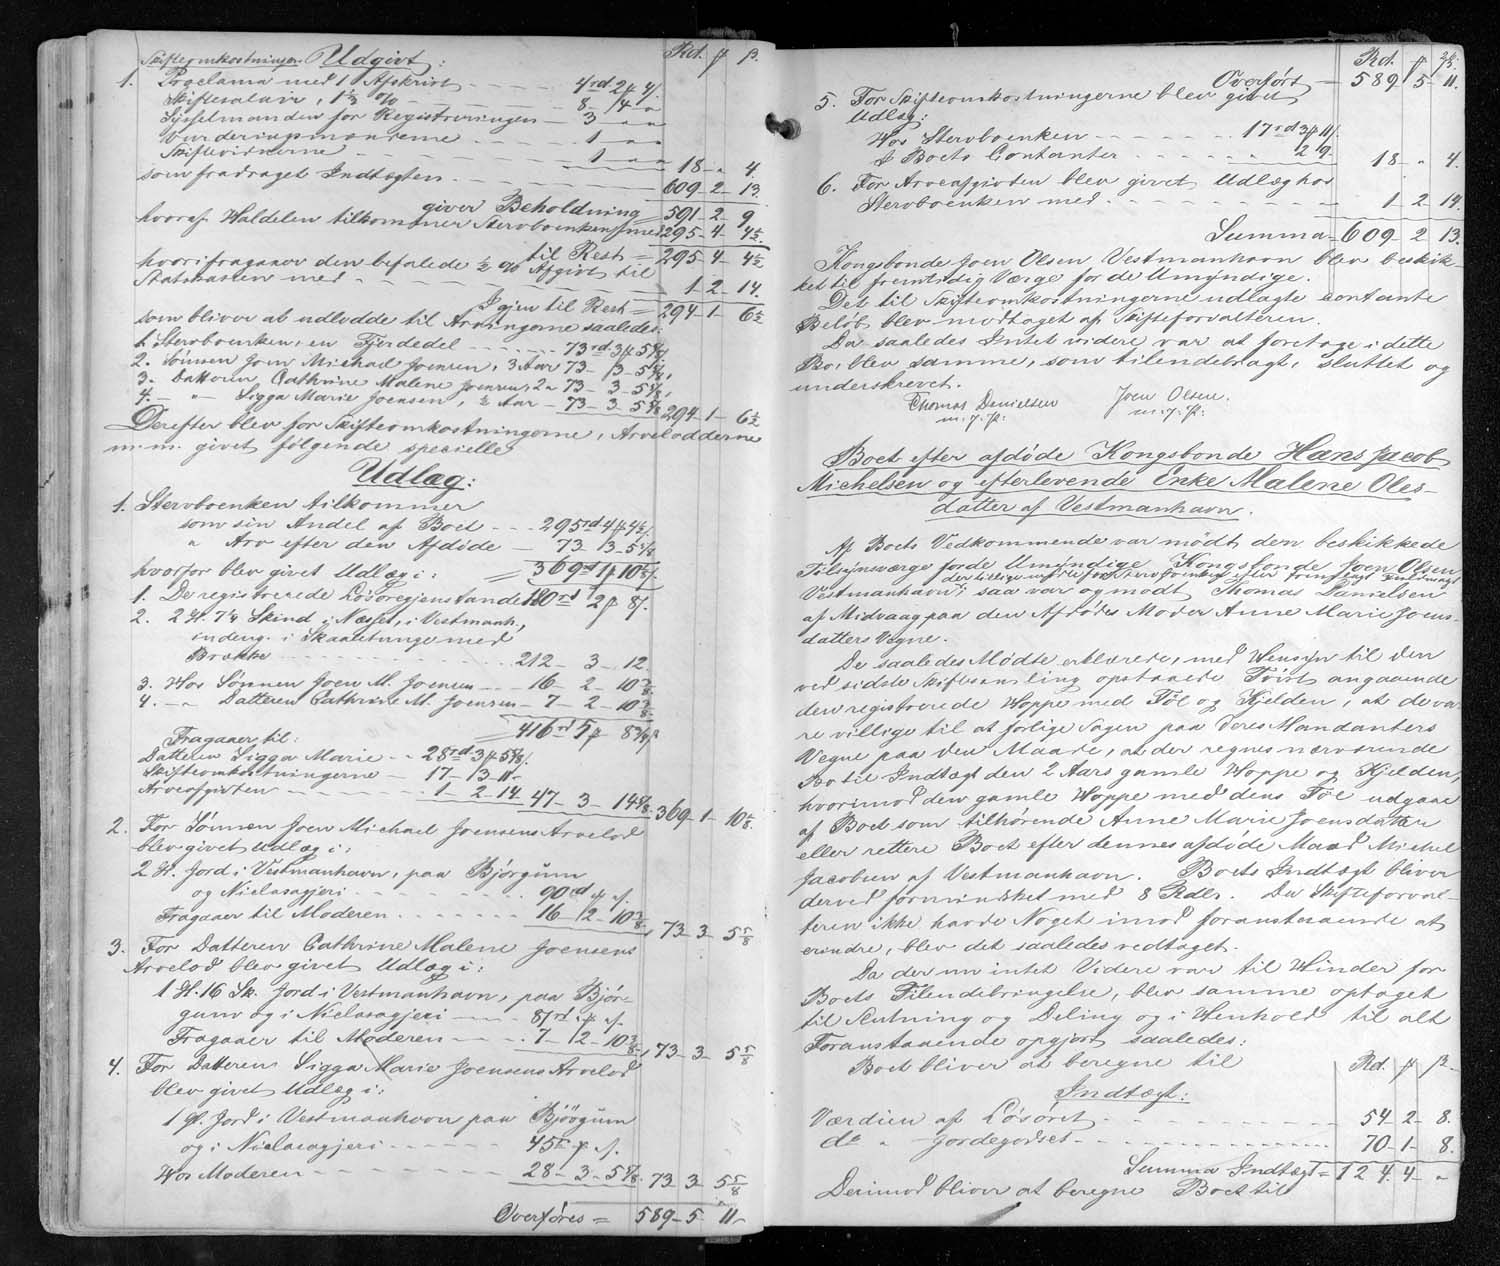 Skifteomkostningen Udgivt: Rd. ₻ β.
1. Proclama med 1 Afskrivt - - - - 4rd 2₻ 4β
Skiftesalair, 1⅓ % - - - - 8 - 4 " "
Sysselmanden for Registreringen - 3 " "
Vurderingsmændene - - - - 1 - " "
Skiftevidnerne - - - - 1 " " 18 - " 4.
som fradraget Indtægten - - - - 609 - 2 - 13.
giver Beholdning = 591 - 2 - 9.
hvoraf Halvdelen tilkommer Stervboenken med 295 - 4 - 4½.
til Rest = 295 - 4 - 4½
hvori fragaaer den befalede ½ % Afgivt til
Statskassen med - - - - 1 - 2 - 14.
Igjen til Rest = 294 - 1 - 6½
som bliver at udlodde til Arvingerne saaledes:
1. Stervboenken, en Fjerdedel - - - 73rd 3₻ 5⅝β
2. Sønnen Joen Michael Joensen, 3 Aar 73 - 3 - 5⅝,
3. Datteren Cathrine Malene Joensen, 2 " 73 - 3 - 5⅝,
4. — " — Sigga Marie Joensen, ½ Aar - 73 - 3 - 5⅝ 294 - 1 - 6½
Derefter blev for Skifteomkostningerne, Arvelodderne
m. m. givet følgende specielle
Udlæg:
1. Stervboenken tilkommer
som sin Andel af Boet - - - 295rd 4₻ 4½β.
" Arv efter den Afdøde - 73 - 3 - 5⅝
hvorfor blev givet Udlæg i: = 369rd 1₻ 10⅛β.
1. De registrerede Løsøregjenstande 180rd 2₻ 8β.
2. 2 H. 7½ Skind i Næsset, i Vestmanh.,
indeng. i Skaaletunge med
Brække - - - - 212 - 3 - 12.
3. Hos Sønnen Joen M. Joensen - - 16 - 2 - 10⅜
4. — " Datteren Cathrine M. Joensen - 7 - 2 - 10⅜
= 416rd 5₻ 8¾β
Fragaaer til:
Datteren Sigga Marie - - 28rd 3₻ 5⅝β.
Skifteomkostningerne - 17 - 3 - 11 -
Arveafgivten - - - - 1 - 2 - 14 47 - 3 - 14⅝ 369 - 1 - 10⅛.
2. For Sønnen Joen Michael Joensens Arvelod
blev givet Udlæg i:
2 H. Jord i Vestmanhavn, paa Bjørgum
og Nielasagjeri - - - - 90rd "₻ "β.
Fragaaer til Moderen - - - - 16 - 2 - 10⅜, 73 - 3 - 5⅝
3. For Datteren Cathrine Malene Joensens
Arvelod blev givet Udlæg i:
1 H. 16 Sk. Jord i Vestmanhavn, paa Bjør-
gum og i Nielasagjeri - - - 81rd "₻ "β.
Fragaaer til Moderen - - - 7 - 2 - 10⅜, 73 - 3 - 5⅝
4. For Datteren Sigga Marie Joensens Arvelod
blev givet Udlæg i:
1 H. Jord i Vestmanhavn paa Bjørgum
og i Nielasagjeri - - - - 45rd "₻ "β.
Hos Moderen - - - - 28 - 3 - 5⅝ 73 - 3 - 5⅝
Overføres = 589 - 5 - 11 -
Rd. ₻ β.
Overført - 589 - 5 - 11.
5. For Skifteomkostningerne blev givet
Udlæg:
Hos Stervboenken - - - - 17rd 3₻ 11β.
I Boets Contanter - - - - 2 9. 18 - " 4.
6. For Arveafgivten blev givet Udlæg hos
Stervboenken med - - - - 1 2 14.
Summa = 609 - 2 13.
Kongsbonde Joen Olsen Vestmanhavn blev beskik-
ket til fremtidig Værge for de Umyndige.
Det til Skifteomkostningerne udlagte contante
Beløb blev modtaget af Skifteforvalteren.
Da saaledes Intet videre var at foretage i dette
Bo, blev samme, som tilendebragt, sluttet og
underskrevet.
Thomas Danielsen Joen Olsen.
m. f. P. m. f. P.
Boet efter afdøde Kongsbonde Hans Jacob
Michelsen og efterlevende Enke Malene Oles-
datter af Vestmanhavn.
Af Boets Vedkommende var mødt den beskikkede
Tilsynsværge for de Umyndige Kongsbonde Joen Olsen
der tillige mødte for Stervboenken efter Fuldmagt
Vestmanhavn; saa var og mødt Thomas Danielsen
af Midvaag paa den Afdødes Moder Anne Marie Joens-
datters Vegne.
De saaledes Mødte erklærede, med Hensyn til den
ved sidste Skiftesamling opstaaede Tvist angaaende
den registrerede Hoppe med Føl og Kjelden, at de va-
re villige til at forlige Sagen paa deres Mandanters
Vegne paa den Maade, at der regnes nærværende
Bo til Indtægt den 2 Aars gamle Hoppe og Kjelden,
hvorimod den gamle Hoppe med dens Føl udgaaer
af Boet som tilhørende Anne Marie Joensdatter
eller rettere Boet efter dennes afdøde Mand Michel
Jacobsen af Vestmanhavn. Boets Indtægt bliver
derved forminsket med 8 Rdlr. Da Skifteforval-
teren ikke havde Noget imod foranstaaende at
erindre, blev det saaledes vedtaget.
Da der nu intet Videre var til Hinder for
Boets Tilendebringelse, blev samme optaget
til Slutning og Deling og i Henhold til alt
Foranstaaende opgjort saaledes:
Boet bliver at beregne til Rd. ₻ β.
Indtægt:
Værdien af Løsøret - - - - 54 - 2 - 8.
do " Jordegodset - - - - 70 - 1 - 8.
Summa Indtægt = 124. 4 - "
Derimod bliver at beregne Boet til